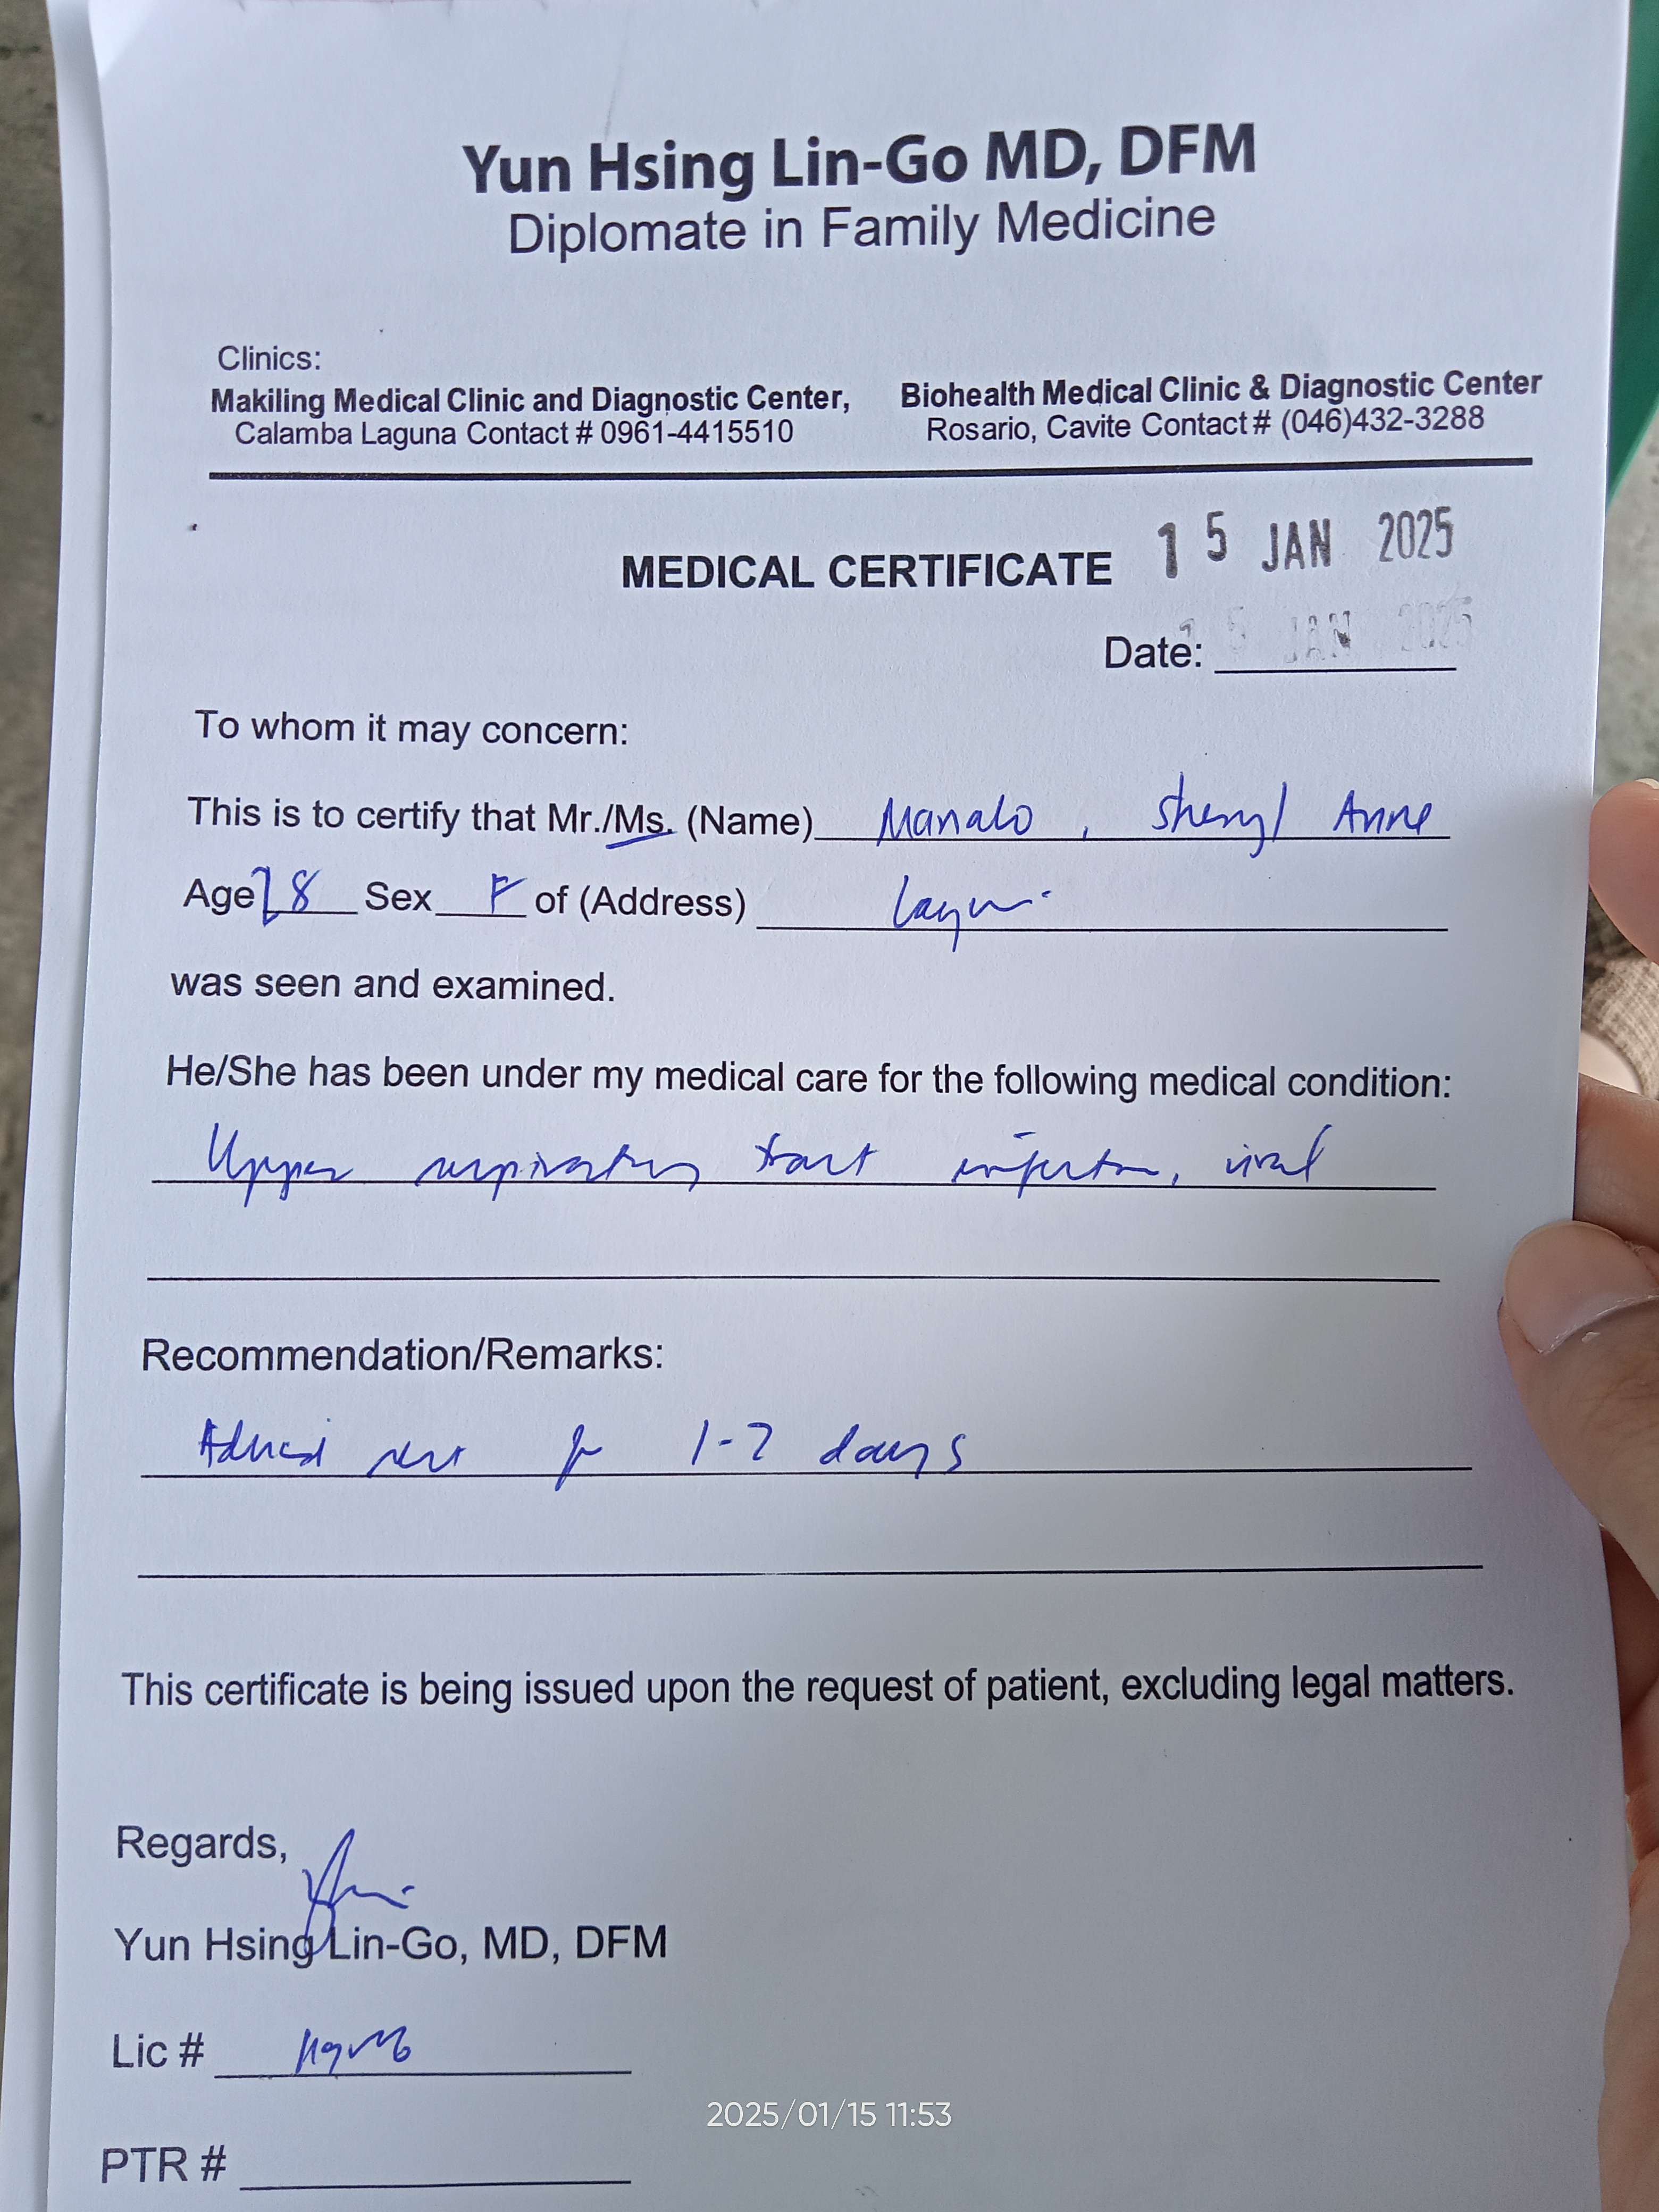 Yun Hsing Lin-Go MD, DFM
Diplomate in Family Medicine
Clinics:
Makiling Medical Clinic and Diagnostic Center,
Calamba Laguna Contact # 0961-4415510
Biohealth Medical Clinic & Diagnostic Center
Rosario, Cavite Contact # (046)432-3288
15 JAN 2025
MEDICAL CERTIFICATE
Date: 15 JAN 2025
To whom it may concern:
This is to certify that Mr./Ms. (Name) Manalo, Sheryl Anne
Age 28 Sex F of (Address) Laguna
was seen and examined.
He/She has been under my medical care for the following medical condition:
Upper respiratory tract infection, viral
Recommendation/Remarks:
Advised rest for 1-2 days
This certificate is being issued upon the request of patient, excluding legal matters.
Regards,
Yun Hsing Lin-Go, MD, DFM
Lic #
PTR #
2025/01/15 11:53